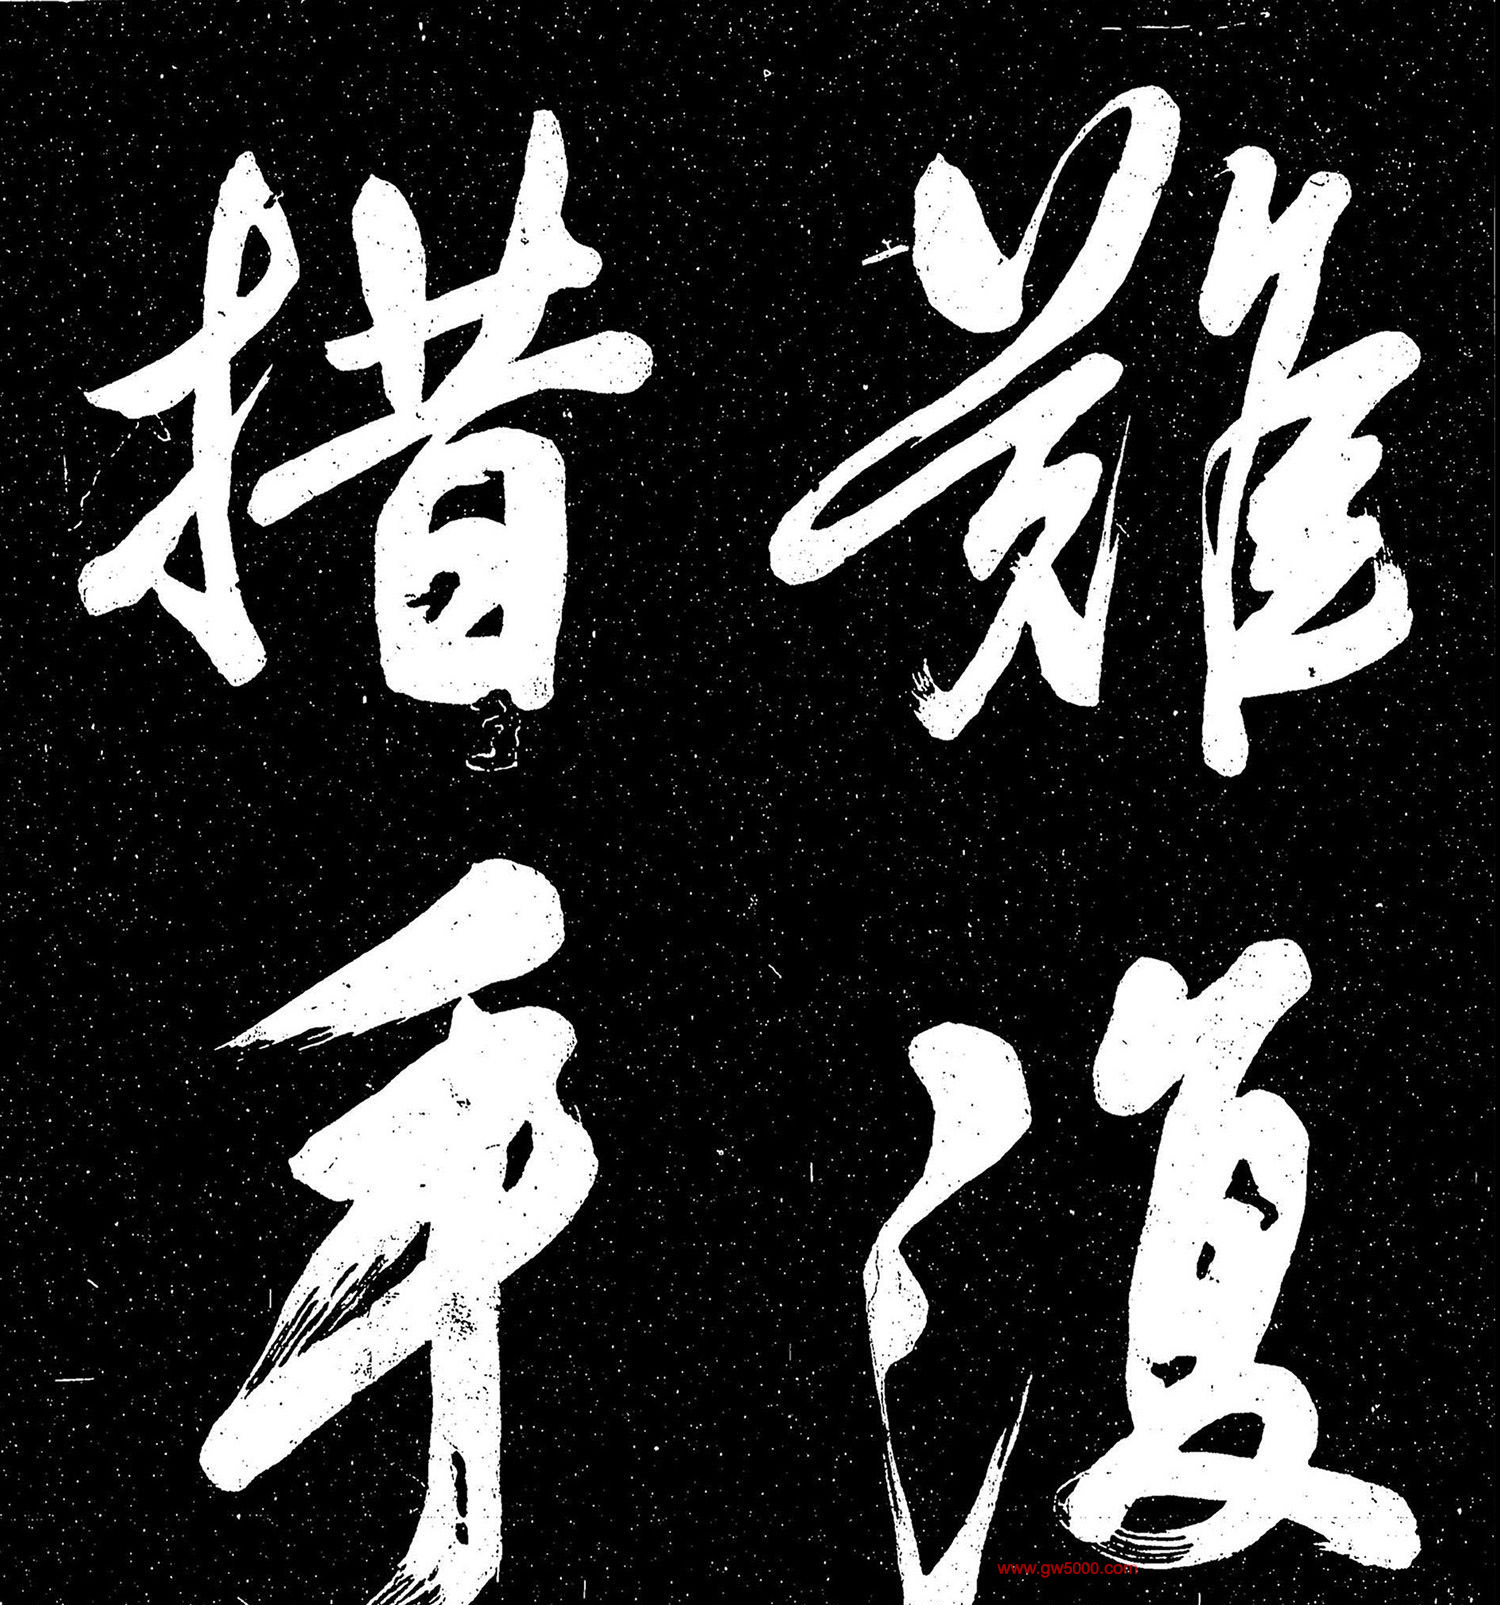 難復
措手
www.gw5000.com